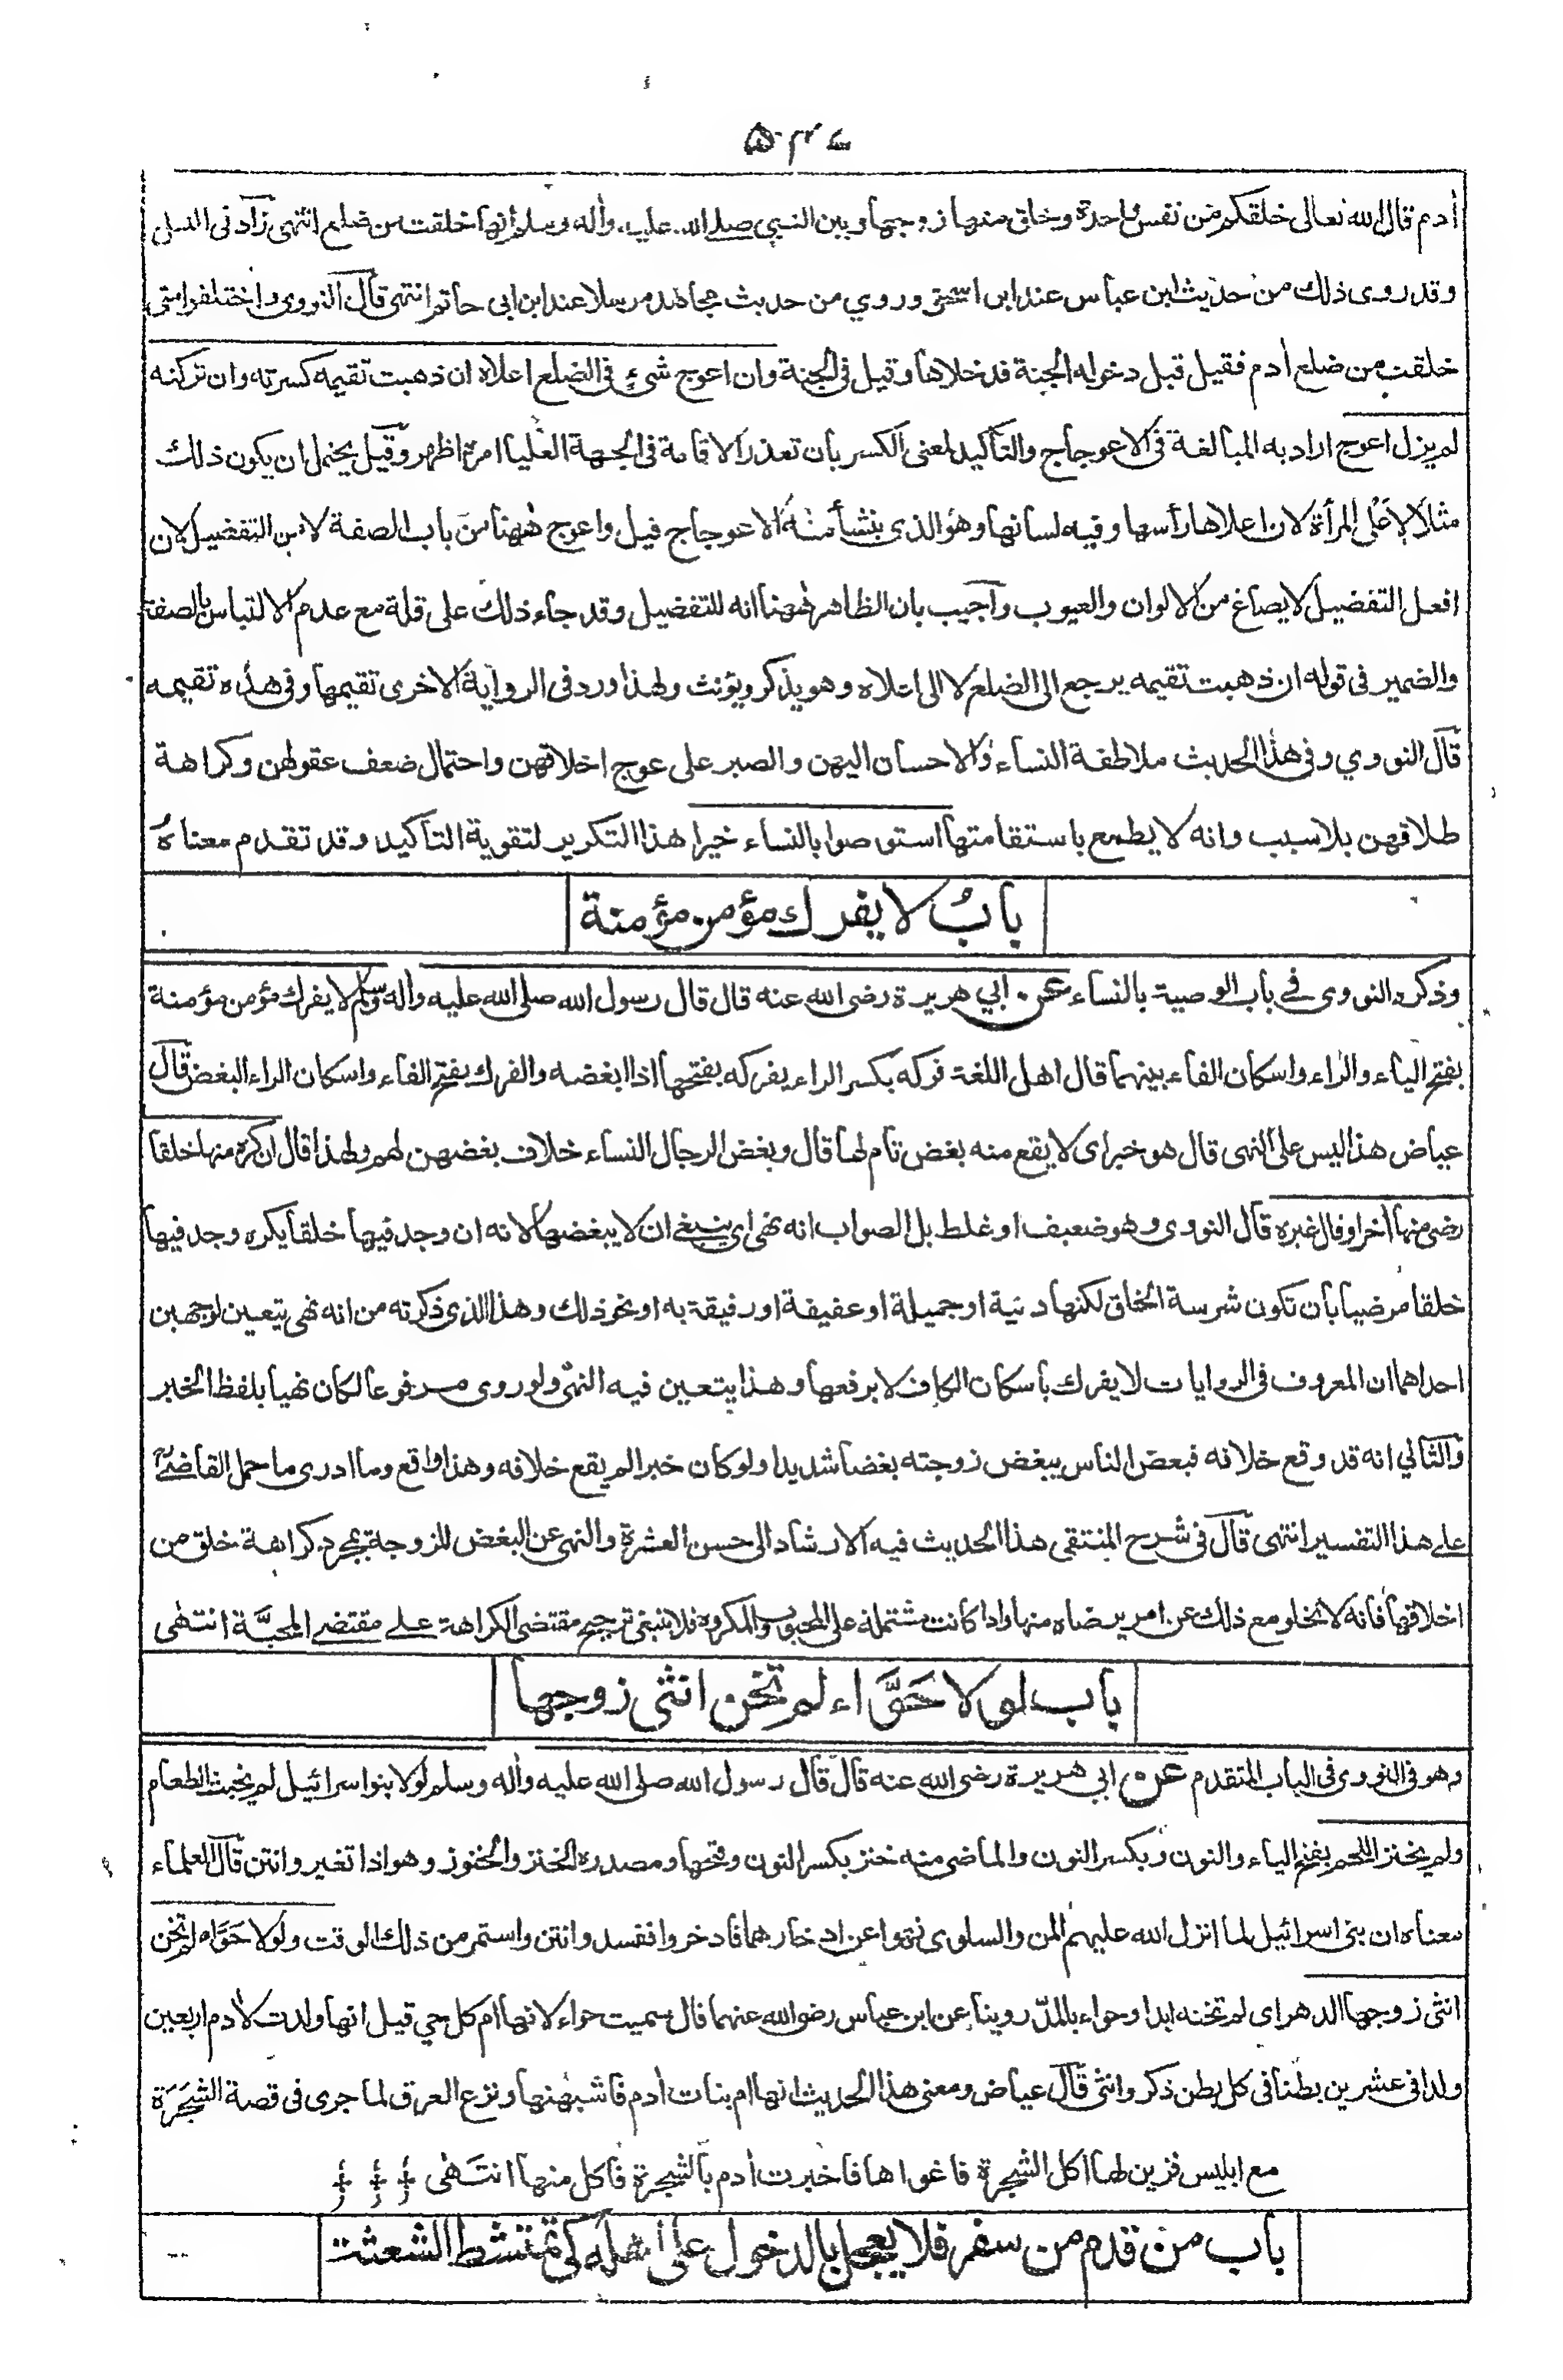 أدم قال الله تعالى خلقكم من نفس واحدة وخلق منها زوجها وبين النبي صلى الله عليه وأله وسلم أنها خلقت من ضلع انتهى زاد فى النيل
وقد روى ذلك من حديث ابن عباس عند ابن اسحق وروي من حديث مجاهد مرسلا عند ابن ابى حاتم انتهى قال النووى واختلفوا متى
خلقت من ضلع أدم فقيل قبل دخوله الجنة فدخلاها وقيل فى الجنة وان اعوج شئ فى الضلع اعلاه ان ذهبت تقيمه كسرته وان تركته
لم يزل اعوج اراد به المبالغة فى الاعوجاج والتأكيد لمعنى الكسر بأن تعذر الاقامة فى الجهة العليا امره اظهر وقيل يحتمل ان يكون ذلك
مثلا لاعلى المرأة لان اعلاها رأسها وفيه لسانها وهو الذى ينشأ منه الاعوجاج قيل واعوج ههنا من باب الصفة لا من التفضيل لان
افعل التفضيل لا يصاغ من الالوان والعيوب وأجيب بان الظاهر ههنا انه للتفضيل وقد جاء ذلك على قلة مع عدم الالتباس بالصفة
والضمير فى قوله ان ذهبت تقيمه يرجع الى الضلع لا الى اعلاه وهو يذكر ويؤنث ولهذا ورد فى الرواية الاخرى تقيمها وفى هذه تقيمه
قال النووي وفى هذا الحديث ملاطفة النساء والاحسان اليهن والصبر على عوج اخلاقهن واحتمال ضعف عقولهن وكراهة
طلاقهن بلا سبب وانه لا يطمع باستقامتها استوصوا بالنساء خيرا هذا التكرير لتقوية التأكيد وقد تقدم معناهُ
بابُ لا يفرك مؤمن مؤمنة
وذكره النووى فے باب الوصية بالنساء عن ابي هريرة رضى الله عنه قال قال رسول الله صلى الله عليه وأله وسلم لا يفرك مؤمن مؤمنة
بفتح الياء والراء واسكان الفاء بينهما قال اهل اللغة فركه بكسر الراء يفركه بفتحها اذا ابغضه والفرك بفتح الفاء واسكان الراء البغض قال
عياض هذا ليس على النهى قال هو خبر اى لا يقع منه بغض تام لها قال وبغض الرجال النساء خلاف بغضهن لهم ولهذا قال ان كره منها خلقا
رضى منها أخر او قال غيره قال النووى وهو ضعيف او غلط بل الصواب انه نهى اى ينبغے ان لا يبغضها لانه ان وجد فيها خلقا يكره وجد فيها
خلقا مرضيا بأن تكون شرسة الخلق لكنها دينية او جميلة او عفيفة او رفيقة به او نحو ذلك وهذا الذى ذكرته من انه نهى يتعين لوجهين
احداهما ان المعروف فى الروايات لا يفرك بأسكان الكاف لا برفعها وهذا يتعين فيه النهى ولو روى مرفوعا لكان نهيا بلفظ الخبر
والثاني انه قد وقع خلافه فبعض الناس يبغض زوجته بغضا شديدا ولو كان خبرا لم يقع خلافه وهذا واقع وما ادرى ما حمل القاضے
علے هذا التفسير انتهى قال فى شرح المنتقى هذا الحديث فيه الارشاد الى حسن العشرة والنهى عن البغض للزوجة بمجرد كراهة خلق من
اخلاقها فأنه لا تخلو مع ذلك عن امر يرضاه منها واذا كانت مشتملة على المحبوب والمكروه فلا ينبغى ترجيح مقتضى الكراهة علے مقتضے المحبَّة انتهى
باب لولا حَوَّاء لم تخن انثى زوجها
وهو فى النووى فى الباب المتقدم عن ابي هريرة رضى الله عنه قال قال رسول الله صلى الله عليه وأله وسلم لولا بنو اسرائيل لم يخبث الطعام
ولم يخنز اللحم بفتح الياء والنون وبكسر النون والماضى منه خنز بكسر النون وفتحها ومصدره الخنز والخنوز وهو اذا تغير وانتن قال العلماء
معناه ان بنى اسرائيل لما انزل الله عليهم المن والسلوى نهوا عن ادخارهما فأدخروا ففسد وانتن واستمر من ذلك الوقت ولولا حَوَّاء لم تخن
انثى زوجها الدهر اى لم تخنه ابدا وحواء بالمدّ روينا عن ابن عباس رضى الله عنهما قال سميت حواء لانها ام كل حي قيل انها ولدت لأدم اربعين
ولدا فى عشرين بطنا فى كل بطن ذكر وانثى قال عياض ومعنى هذا الحديث انها ام بنات أدم فأشبهنها ونزع العرق لما جرى فى قصة الشجَرَة
مع ابليس فزين لها اكل الشجرة فاغواها فأخبرت أدم بالشجرة فأكل منها انتَهٰى
باب من قدم من سفر فلا يعجل بالدخول على أهله كى تمتشط الشعثة